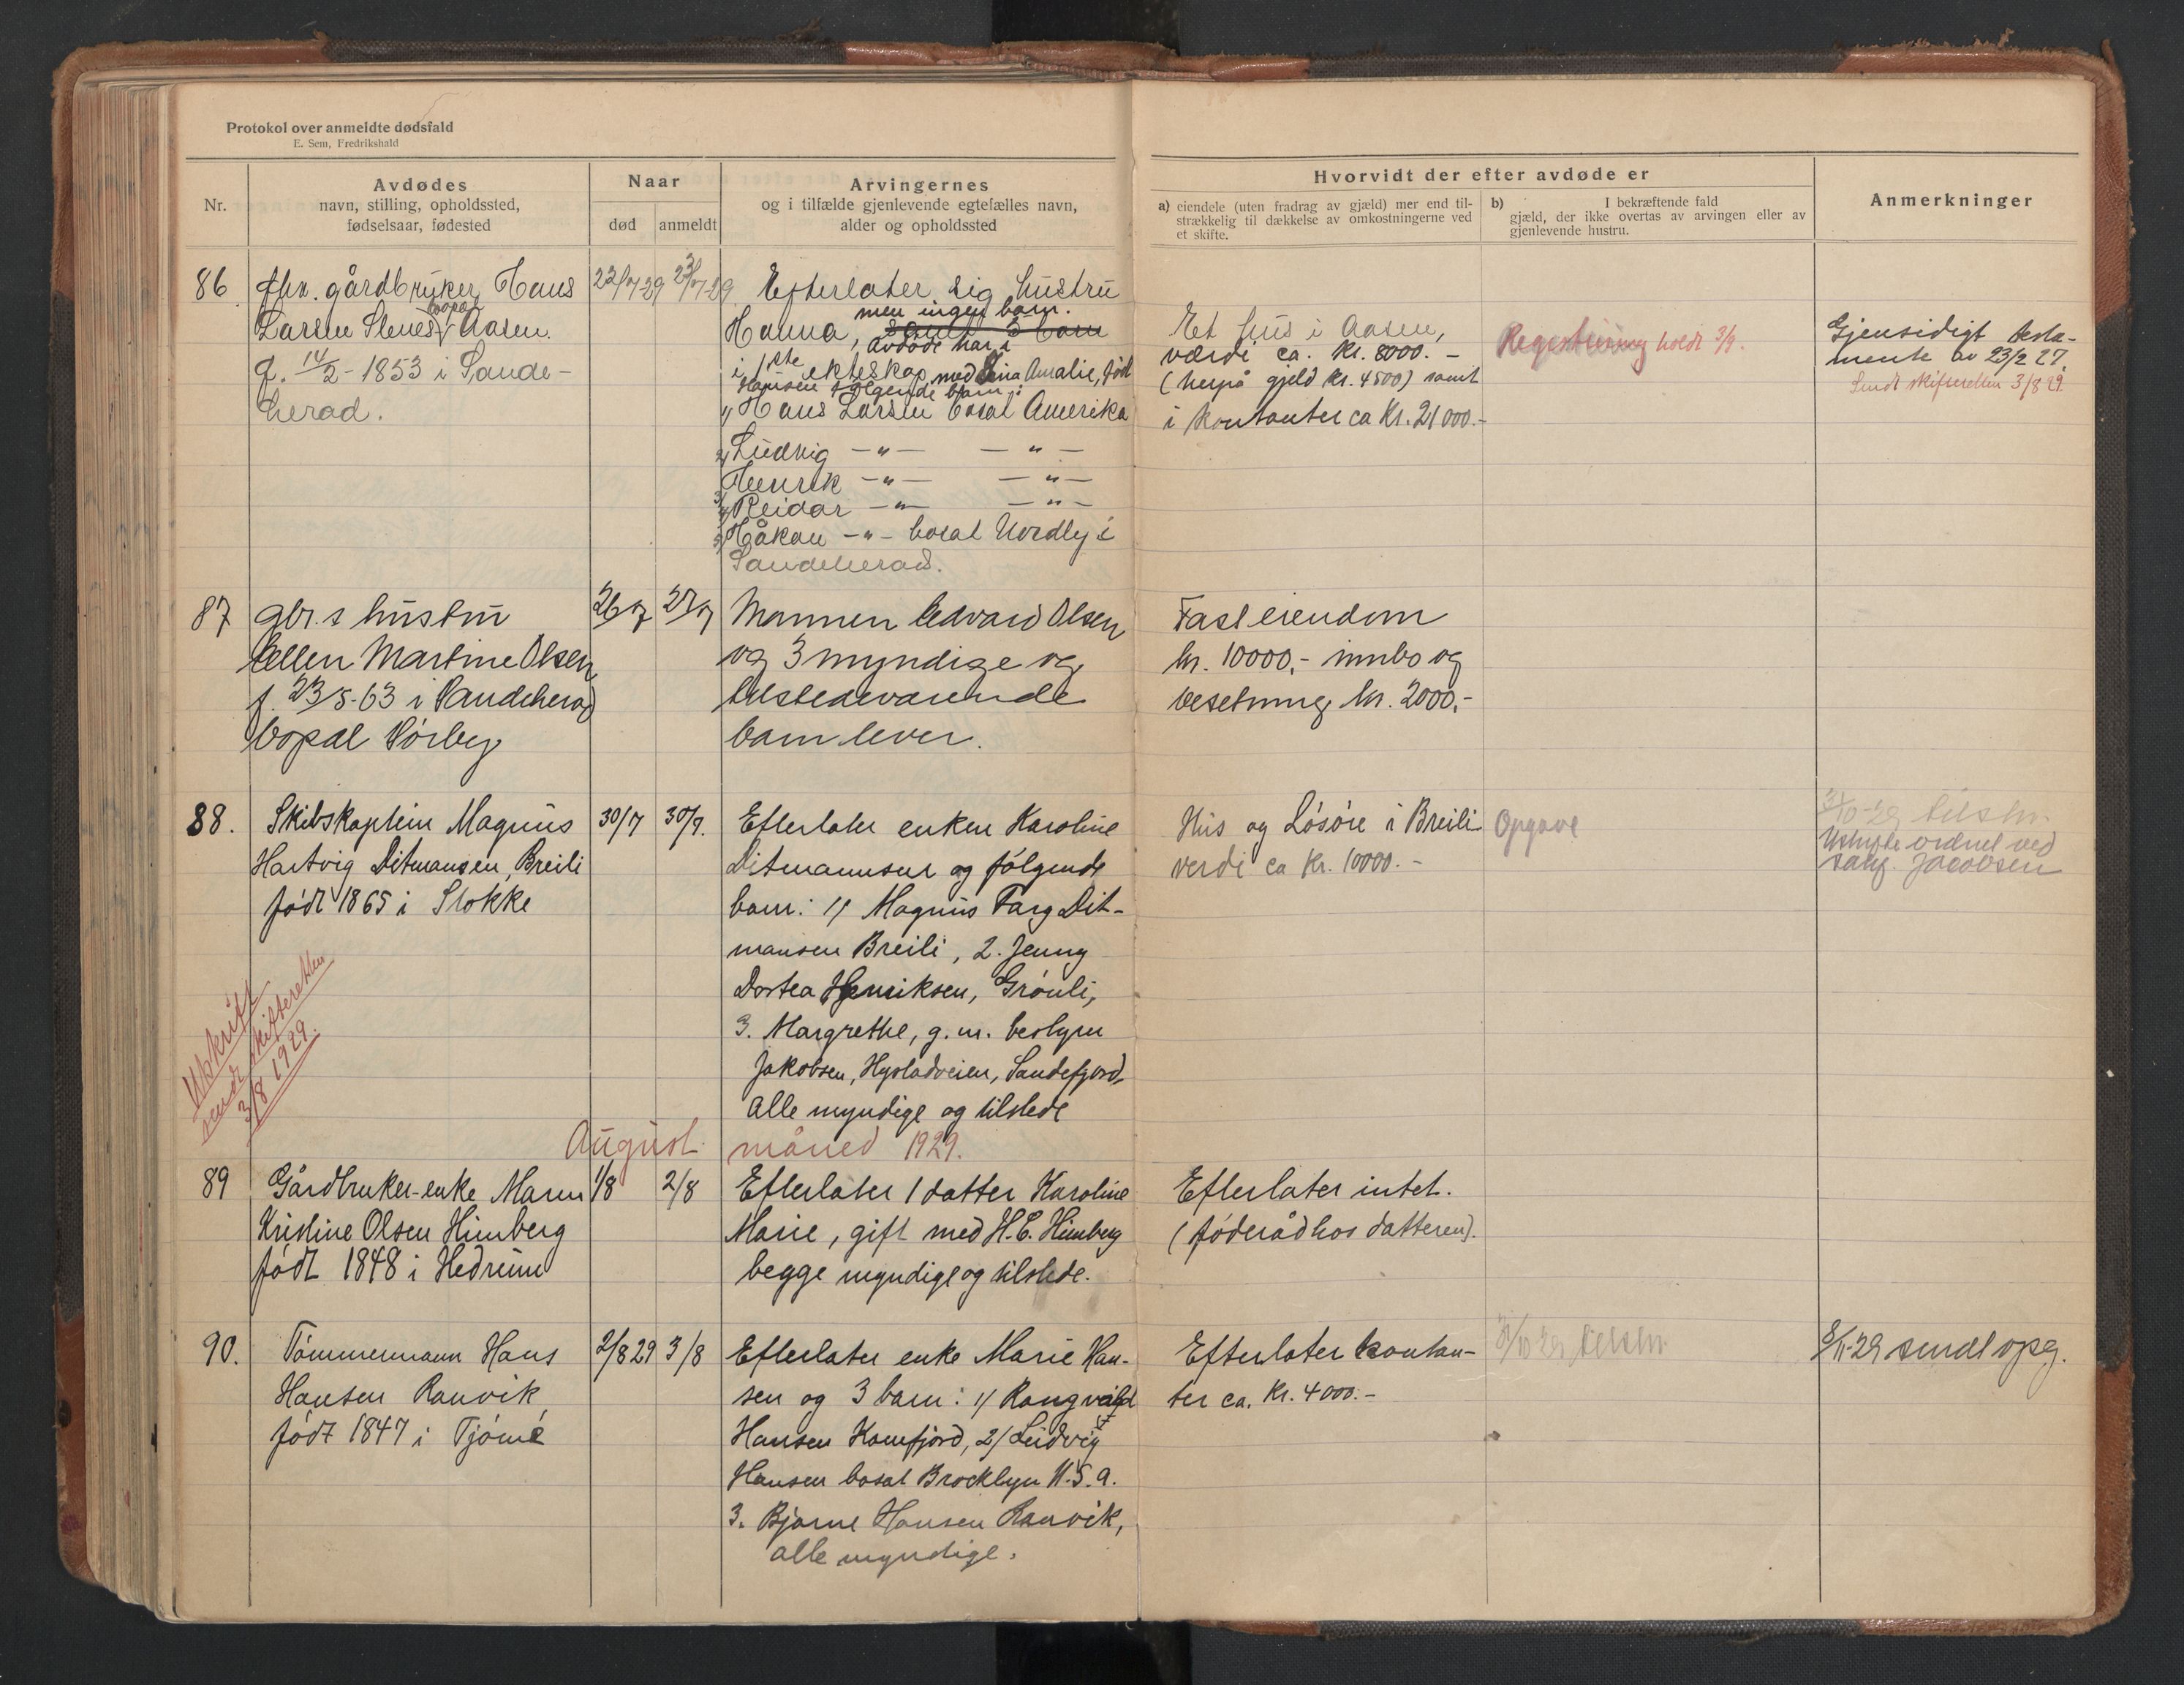 Protokol over anmeldte dødsfald
E. Sem, Fredrikshald
Nr.
Avdødes
navn, stilling, opholdssted,
fødselsaar, fødested
Naar
død
anmeldt
Arvingernes
og i tilfælde gjenlevende egtefælles navn,
alder og opholdssted
Hvorvidt der efter avdøde er
a) eiendele (uten fradrag av gjæld) mer end til-
strækkelig til dækkelse av omkostningerne ved
et skifte.
b) I bekræftende fald
gjæld, der ikke overtas av arvingen eller av
gjenlevende hustru.
Anmerkninger
86
fhv. gårdbruker Hans
Larsen bopæl Aasen.
f. 14/2-1853 i Sande-
herad.
22/7-29
23/7-29
Efterlater sig hustru
men ingen barn.
Hanna, samt 5 barn
avdøde har i
i 1ste ekteskap med Lina Amalie, født
Hansen følgende barn:
1/ Hans Larsen bosat Amerika
2/ Ludvig -"- -"-
3/ Henrik -"- -"-
4/ Reidar -"- -"-
5/ Håkon -"- bosat Nordby i
Sandeherad.
Et hus i Aasen,
værdi ca. kr. 8000.-
(herpå gjeld kr. 4500) samt
i kontanter ca kr. 21000.-
Registrering holdt 3/9.
Gjensidigt testa-
mente av 23/2 27.
Sendt skifteretten 3/8 29.
87
gbr.s hustru
Ellen Martine Olsen
f. 23/5-63 i Sandeherad
bopæl Sørby
26/7
27/7
Mannen Edvard Olsen
og 3 myndige og
tilstedeværende
barn lever.
Fast eiendom
kr. 10000,- innbo og
besetning kr. 2000,-
88.
Skibskaptein Magnus
Hartvig Ditmansen, Breili
født 1865 i Stokke
30/7
30/7.
Efterlater enken Karoline
Ditmannsen og følgende
barn: 1/ Magnus Farg Dit-
mansen Breili, 2. Jenny
Dortea Henriksen, Grønli,
3. Margrethe, g.m. bestyrer
Jakobsen, Hystadveien, Sandefjord,
alle myndige og tilstede
Hus og Løsøre i Breili
verdi ca kr. 10000.-
Opgave
31/10-29 tilskr.
Uskifte ordnet ved
Jacobsen
Utskrift
sendt skifteretten
3/8 1929.
August måned 1929.
89
Gårdbruker-enke Maren
Kristine Olsen Himberg
født 1848 i Hedrum
1/8
2/8
Efterlater 1 datter Karoline
Marie, gift med H.E. Himberg
begge myndige og tilstede.
Efterlater intet.
(føderåd hos datteren).
90.
Tømmermann Hans
Hansen Ranvik,
født 1847 i Tjøme
2/8 29
3/8
Efterlater enke Marie Han-
sen og 3 barn: 1/ Rangvald
Hansen Kamfjord, 2/ Ludvig
Hansen bosat Brocklyn U.S.A.
3. Bjarne Hansen Ranvik,
alle myndige.
Efterlater kontan-
ter ca. kr. 4000.-
31/10 29 tilskr.
8/11-29 sendt opg.